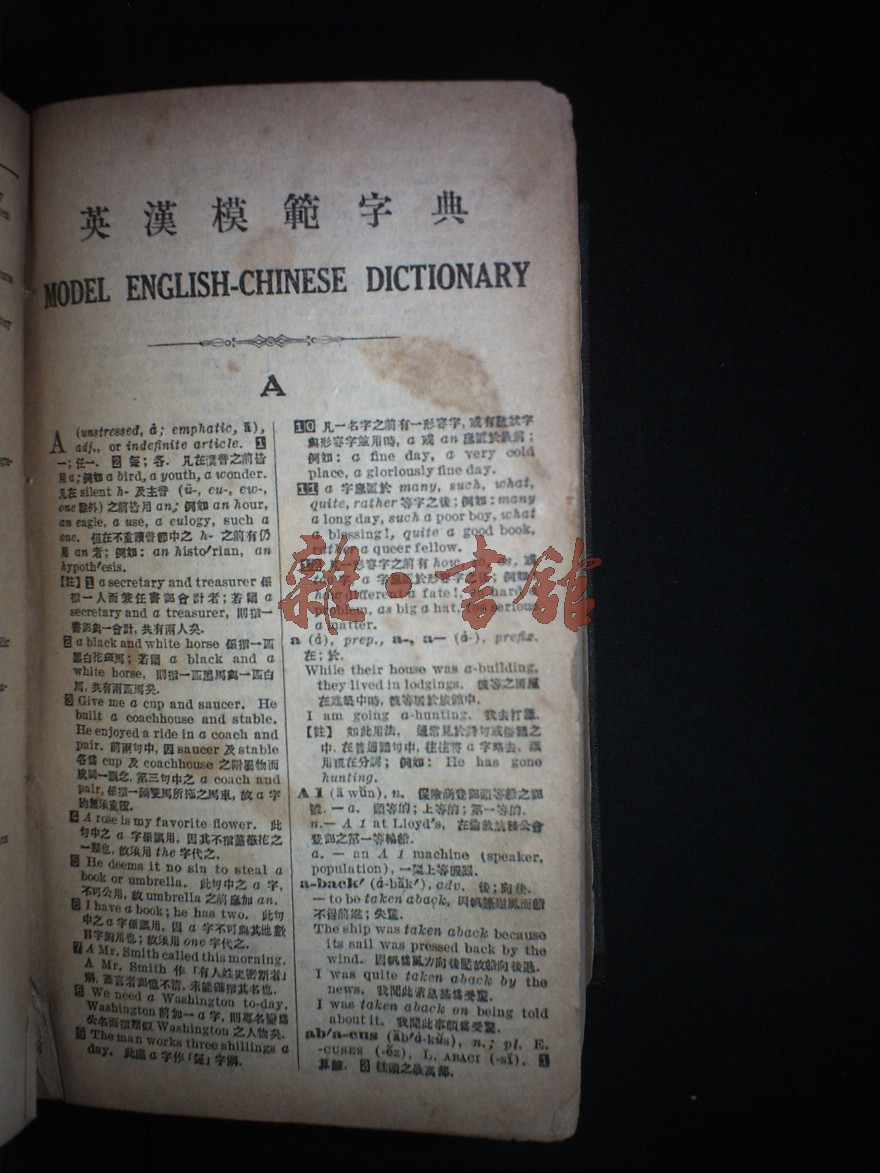 英漢模範字典
MODEL ENGLISH-CHINESE DICTIONARY
A
A (unstressed, ȧ; emphatic, ā),
adj., or indefinite article. 1
一;任一. 2 每;各. 凡在僕音之前皆
用a; 例如 a bird, a youth, a wonder.
凡在 silent h- 及主音 (ū-, eu-, ew-,
one 除外) 之前皆用 an; 例如 an hour,
an eagle, a use, a eulogy, such a
one. 但在不重讀音節中之 h- 之前有仍
用 an 者; 例如: an histo′rian, an
hypoth′esis.
[註] 1 a secretary and treasurer 係
指一人而兼任書記會計者;若爲 a
secretary and a treasurer, 則指一
書記與一會計,共有兩人矣.
2 a black and white horse 係指一匹
黑白花斑馬;若爲 a black and a
white horse, 則指一匹黑馬與一匹白
馬,共有兩匹馬矣.
3 Give me a cup and saucer. He
built a coachhouse and stable.
He enjoyed a ride in a coach and
pair. 前兩句中, 因 saucer 及 stable
各爲 cup 及 coachhouse 之附屬物而
成同一觀念, 第三句中之 a coach and
pair, 係指一輛雙馬所拖之馬車, 故 a 字
均無須重覆.
4 A rose is my favorite flower. 此
句中之 a 字係誤用, 因其不指薔薇花之
一類也, 故須用 the 字代之.
5 He deems it no sin to steal a
book or umbrella. 此句中之 a 字,
不可公用, 故 umbrella 之前應加 an.
6 I have a book; he has two. 此句
中之 a 字係誤用, 因 a 字不可與其他數
目字對用也;故須用 one 字代之.
7 A Mr. Smith called this morning.
A Mr. Smith 作「有人姓史密斯者」
解, 蓋言者記憶不清, 未能確指其名也.
8 We need a Washington to-day.
Washington 前加一 a 字, 則專名變爲
公名而指類似 Washington 之人物矣.
9 The man works three shillings a
day. 此處 a 字作「每」字解.
10 凡一名字之前有一形容字, 或有疏狀字
與形容字並用時, a 或 an 應置於最前;
例如: a fine day, a very cold
place, a gloriously fine day.
11 a 字應置於 many, such, what,
quite, rather 等字之後; 例如: many
a long day, such a poor boy, what
a blessing!, quite a good book,
rather a queer fellow.
12 凡一形容字之前有 how, so, as, 或
too 字, a 字應置於形容字之後; 例如:
how different a fate!, so hard a
problem, as big a hat, too serious
a matter.
a (ȧ), prep., a-, a— (ȧ-), prefix.
在;於.
While their house was a-building,
they lived in lodgings. 彼等之房屋
在建築中時, 彼等居於旅館中.
I am going a-hunting. 我去打獵.
[註] 如此用法, 通常見於詩句或俗語之
中, 在普通語句中, 往往將 a 字略去,
用現在分詞; 例如: He has gone
hunting.
A 1 (ā wŭn), n. 保險商登記頭等船之記
號. — a. 頭等的;上等的;第一等的.
n.— A 1 at Lloyd's, 在倫敦船務公會
登記之第一等輪船.
a. — an A 1 machine (speaker,
population), 一架上等機器.
a-back′ (ȧ-băk′), adv. 後;向後.
— to be taken aback, 因帆逢逆風而船
不得前進;失驚.
The ship was taken aback because
its sail was pressed back by the
wind. 因帆爲風力向後壓故船向後退.
I was quite taken aback by the
news. 我聞此消息甚爲受驚.
I was taken aback on being told
about it. 我聞此事頗爲受驚.
ab′a-cus (ăb′ȧ-kŭs), n.; pl. E.
-CUSES (-ĕz), L. ABACI (-sī). 1
算盤. 2 柱頭之最高部.
雜·書館